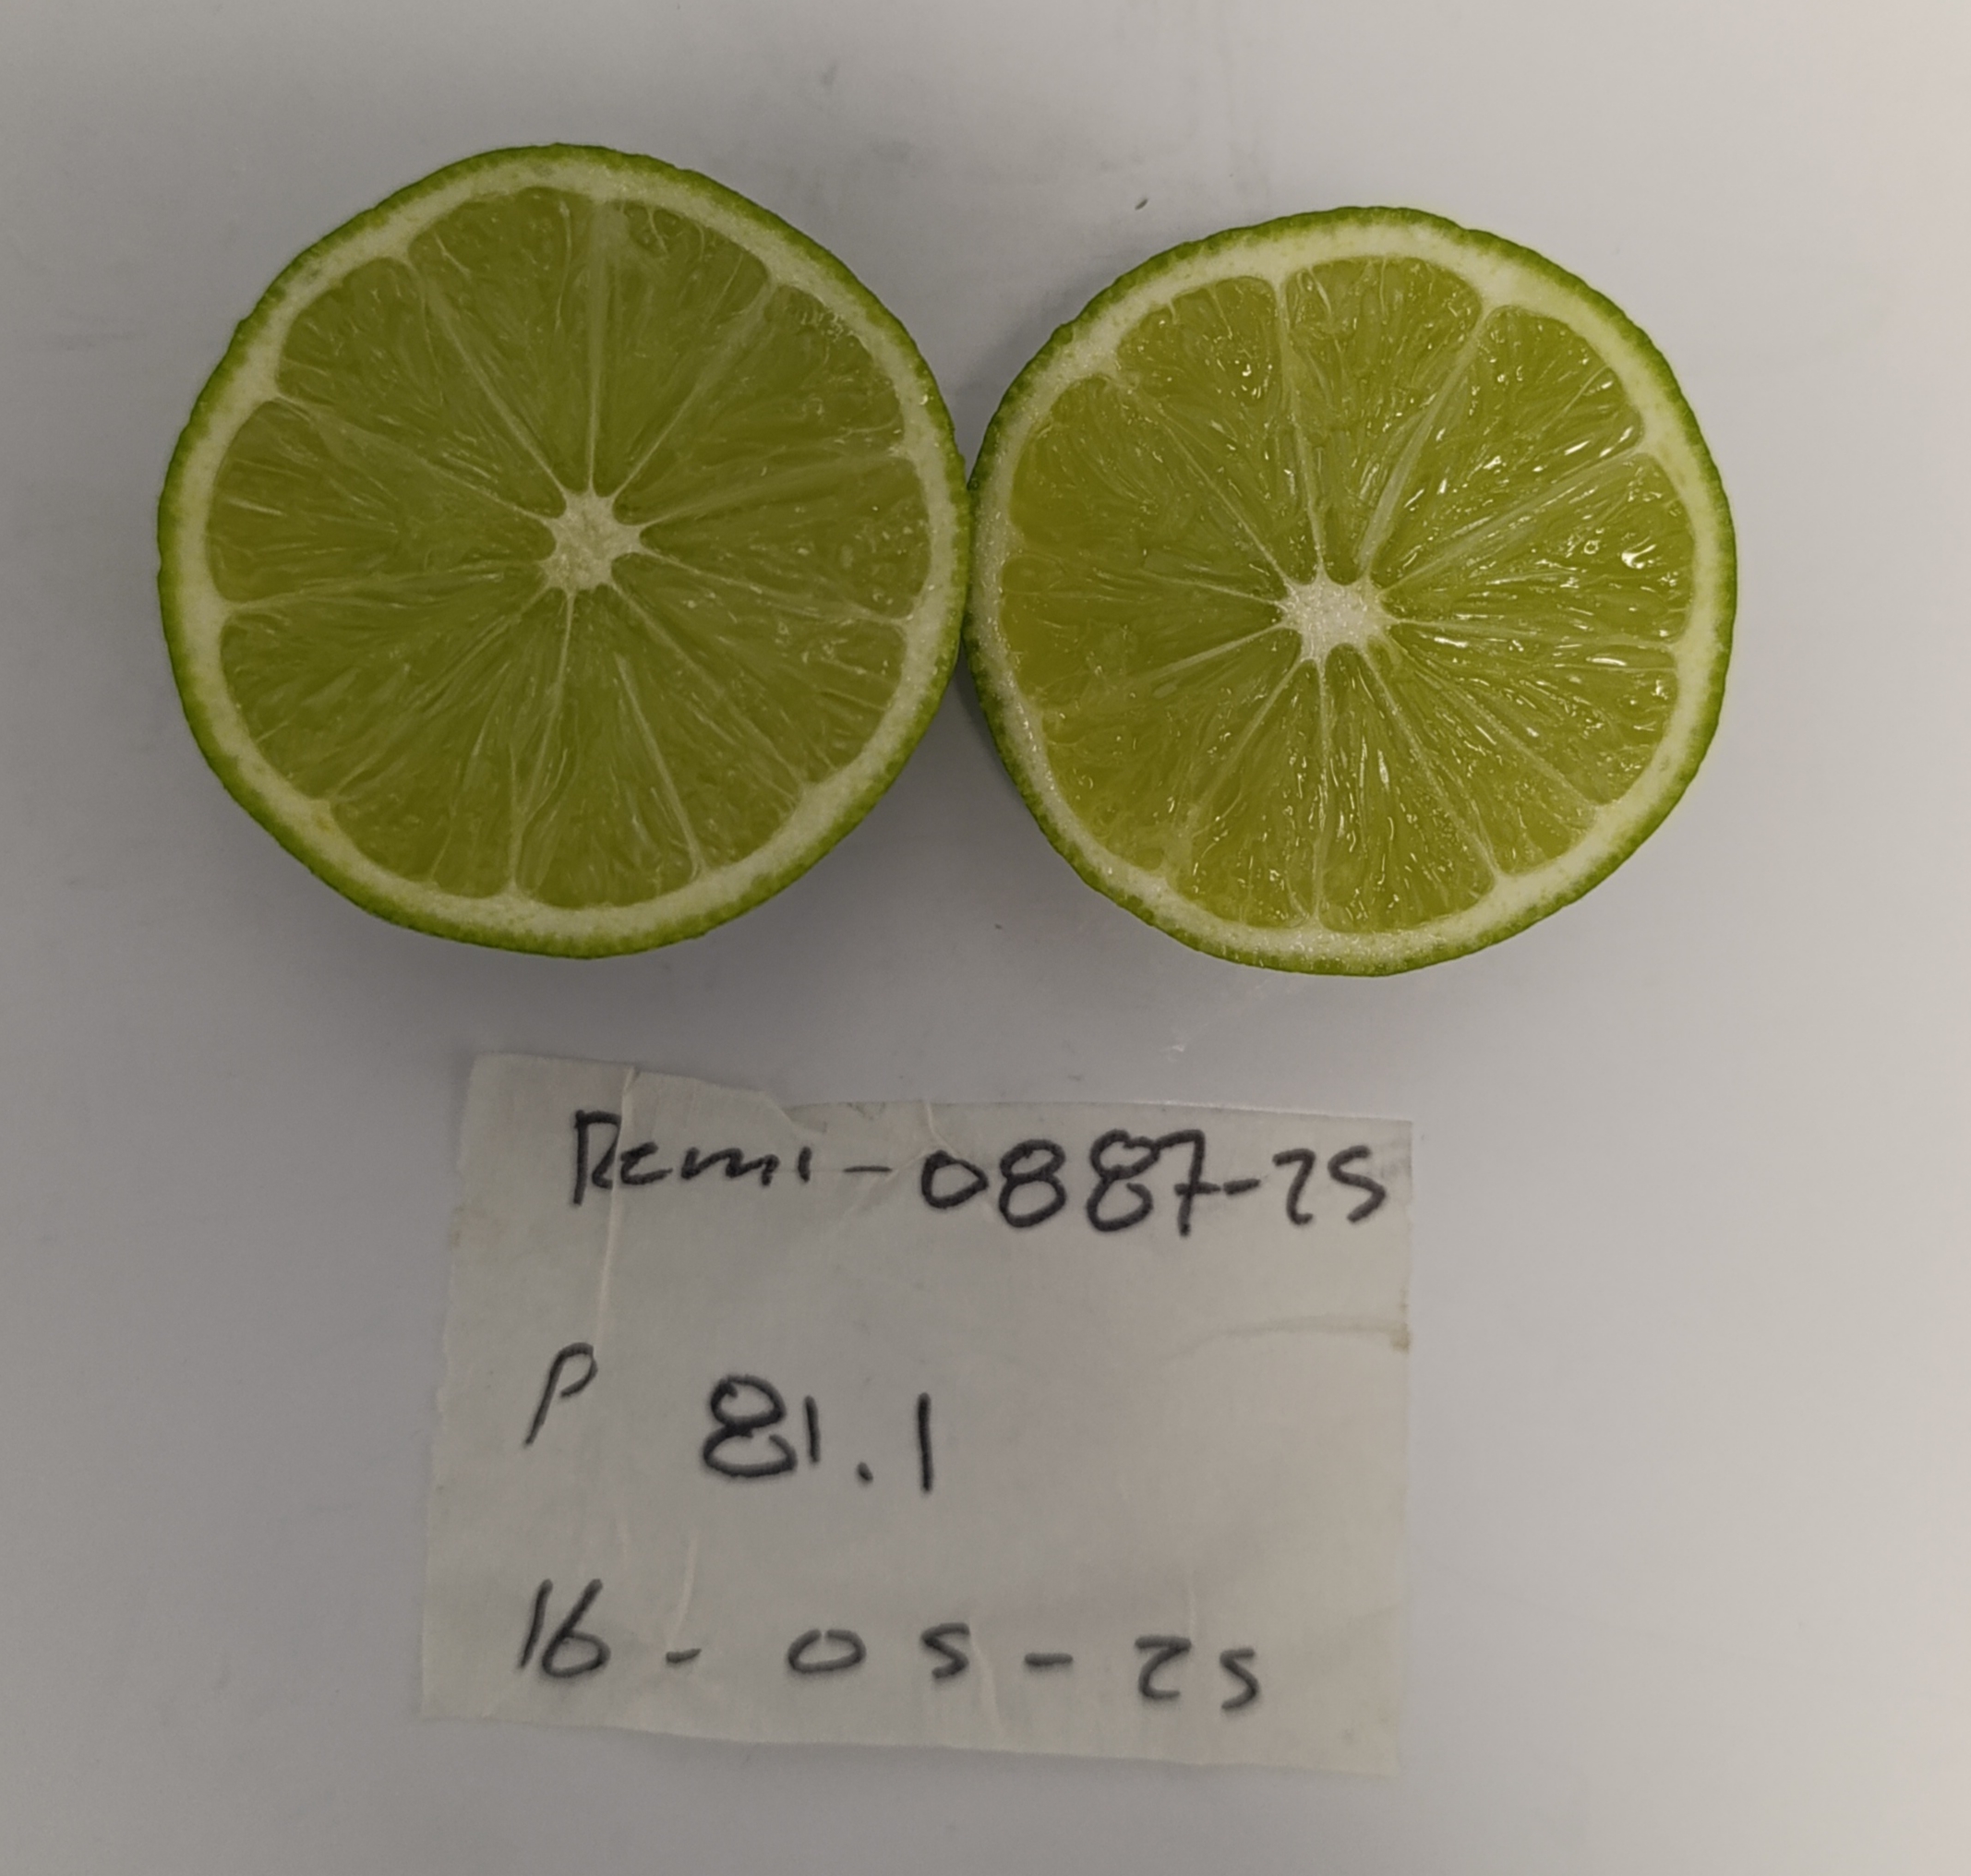 Remi-0887-25
P 81.1
16-05-25